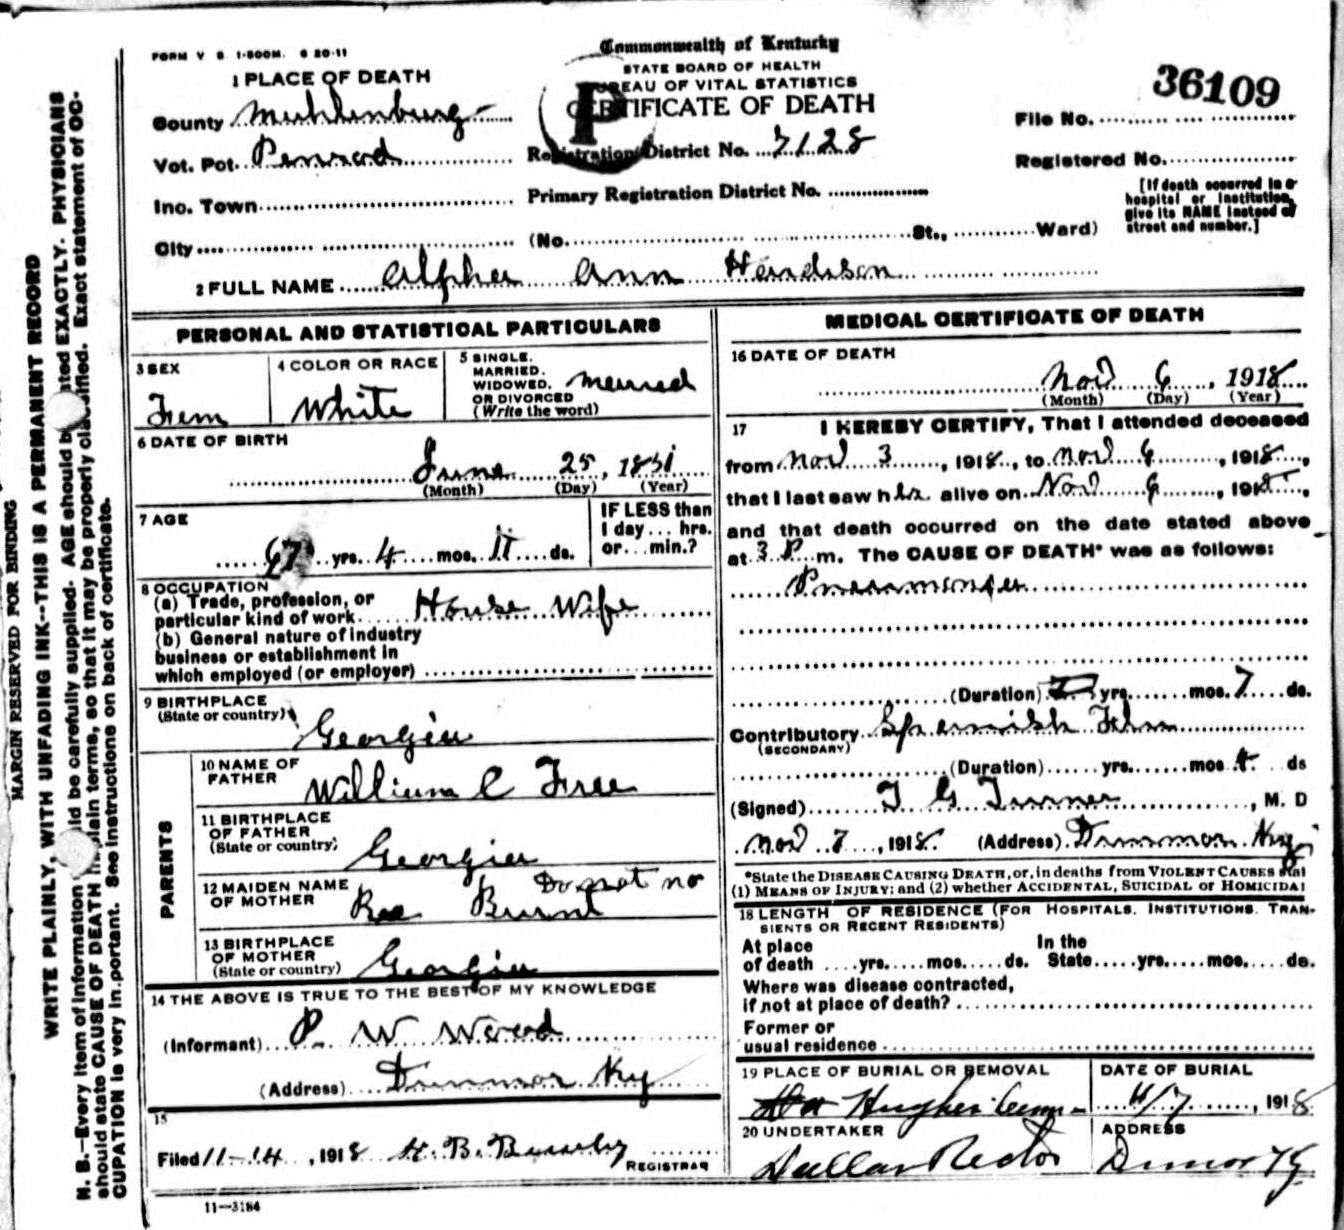 FORM V S. 1-500M. 6 20-11
Commonwealth of Kentucky
STATE BOARD OF HEALTH
BUREAU OF VITAL STATISTICS
CERTIFICATE OF DEATH
36109
1 PLACE OF DEATH
County Muhlenburg
Vot. Pct. Penrod
Inc. Town
City
Registration District No. 7128
Primary Registration District No.
(No. St., Ward)
File No.
Registered No.
[If death occurred in a
hospital or institution,
give its NAME instead of
street and number.]
2 FULL NAME Alpha Ann Hendison
PERSONAL AND STATISTICAL PARTICULARS
3 SEX
Fem
4 COLOR OR RACE
White
5 SINGLE.
MARRIED.
WIDOWED.
OR DIVORCED
(Write the word)
Married
6 DATE OF BIRTH
June 25, 1851
(Month) (Day) (Year)
7 AGE
67 yrs. 4 mos. 11 ds.
IF LESS than
1 day... hrs.
or... min.?
8 OCCUPATION
(a) Trade, profession, or
particular kind of work House Wife
(b) General nature of industry
business or establishment in
which employed (or employer)
9 BIRTHPLACE
(State or country)
Georgia
PARENTS
10 NAME OF
FATHER
William C Free
11 BIRTHPLACE
OF FATHER
(State or country)
Georgia
12 MAIDEN NAME
OF MOTHER
Do not no
Burnt
13 BIRTHPLACE
OF MOTHER
(State or country)
Georgia
14 THE ABOVE IS TRUE TO THE BEST OF MY KNOWLEDGE
(Informant) P W Wood
(Address) Dunmor Ky
15
Filed 11-14, 1918 H. B.
REGISTRAR
11-3184
MEDICAL CERTIFICATE OF DEATH
16 DATE OF DEATH
Nov 6, 1918
(Month) (Day) (Year)
17 I HEREBY CERTIFY, That I attended deceased
from Nov 3, 1918, to Nov 6, 1918,
that I last saw her alive on Nov 6, 1918,
and that death occurred on the date stated above
at 3 P m. The CAUSE OF DEATH* was as follows:
Pneumonia
(Duration) yrs. mos. 7 ds.
Contributory Spanish Flu
(SECONDARY)
(Duration) yrs. mos 4 ds
(Signed) T G Turner, M. D
Nov 7, 1918. (Address) Dunmor Ky
*State the DISEASE CAUSING DEATH, or, in deaths from VIOLENT CAUSES stat
(1) MEANS OF INJURY; and (2) whether ACCIDENTAL, SUICIDAL or HOMICIDAL
18 LENGTH OF RESIDENCE (FOR HOSPITALS. INSTITUTIONS. TRAN-
SIENTS OR RECENT RESIDENTS)
At place In the
of death yrs. mos. ds. State yrs. mos. ds.
Where was disease contracted,
if not at place of death?
Former or
usual residence
19 PLACE OF BURIAL OR REMOVAL
Hughes Cem
DATE OF BURIAL
11/7, 1918
20 UNDERTAKER
Dallas Rector
ADDRESS
Dunmor Ky
MARGIN RESERVED FOR BINDING
WRITE PLAINLY, WITH UNFADING INK--THIS IS A PERMANENT RECORD
N. B.--Every item of information should be carefully supplied. AGE should be stated EXACTLY. PHYSICIANS
should state CAUSE OF DEATH in plain terms, so that it may be properly classified. Exact statement of OC-
CUPATION is very important. See instructions on back of certificate.